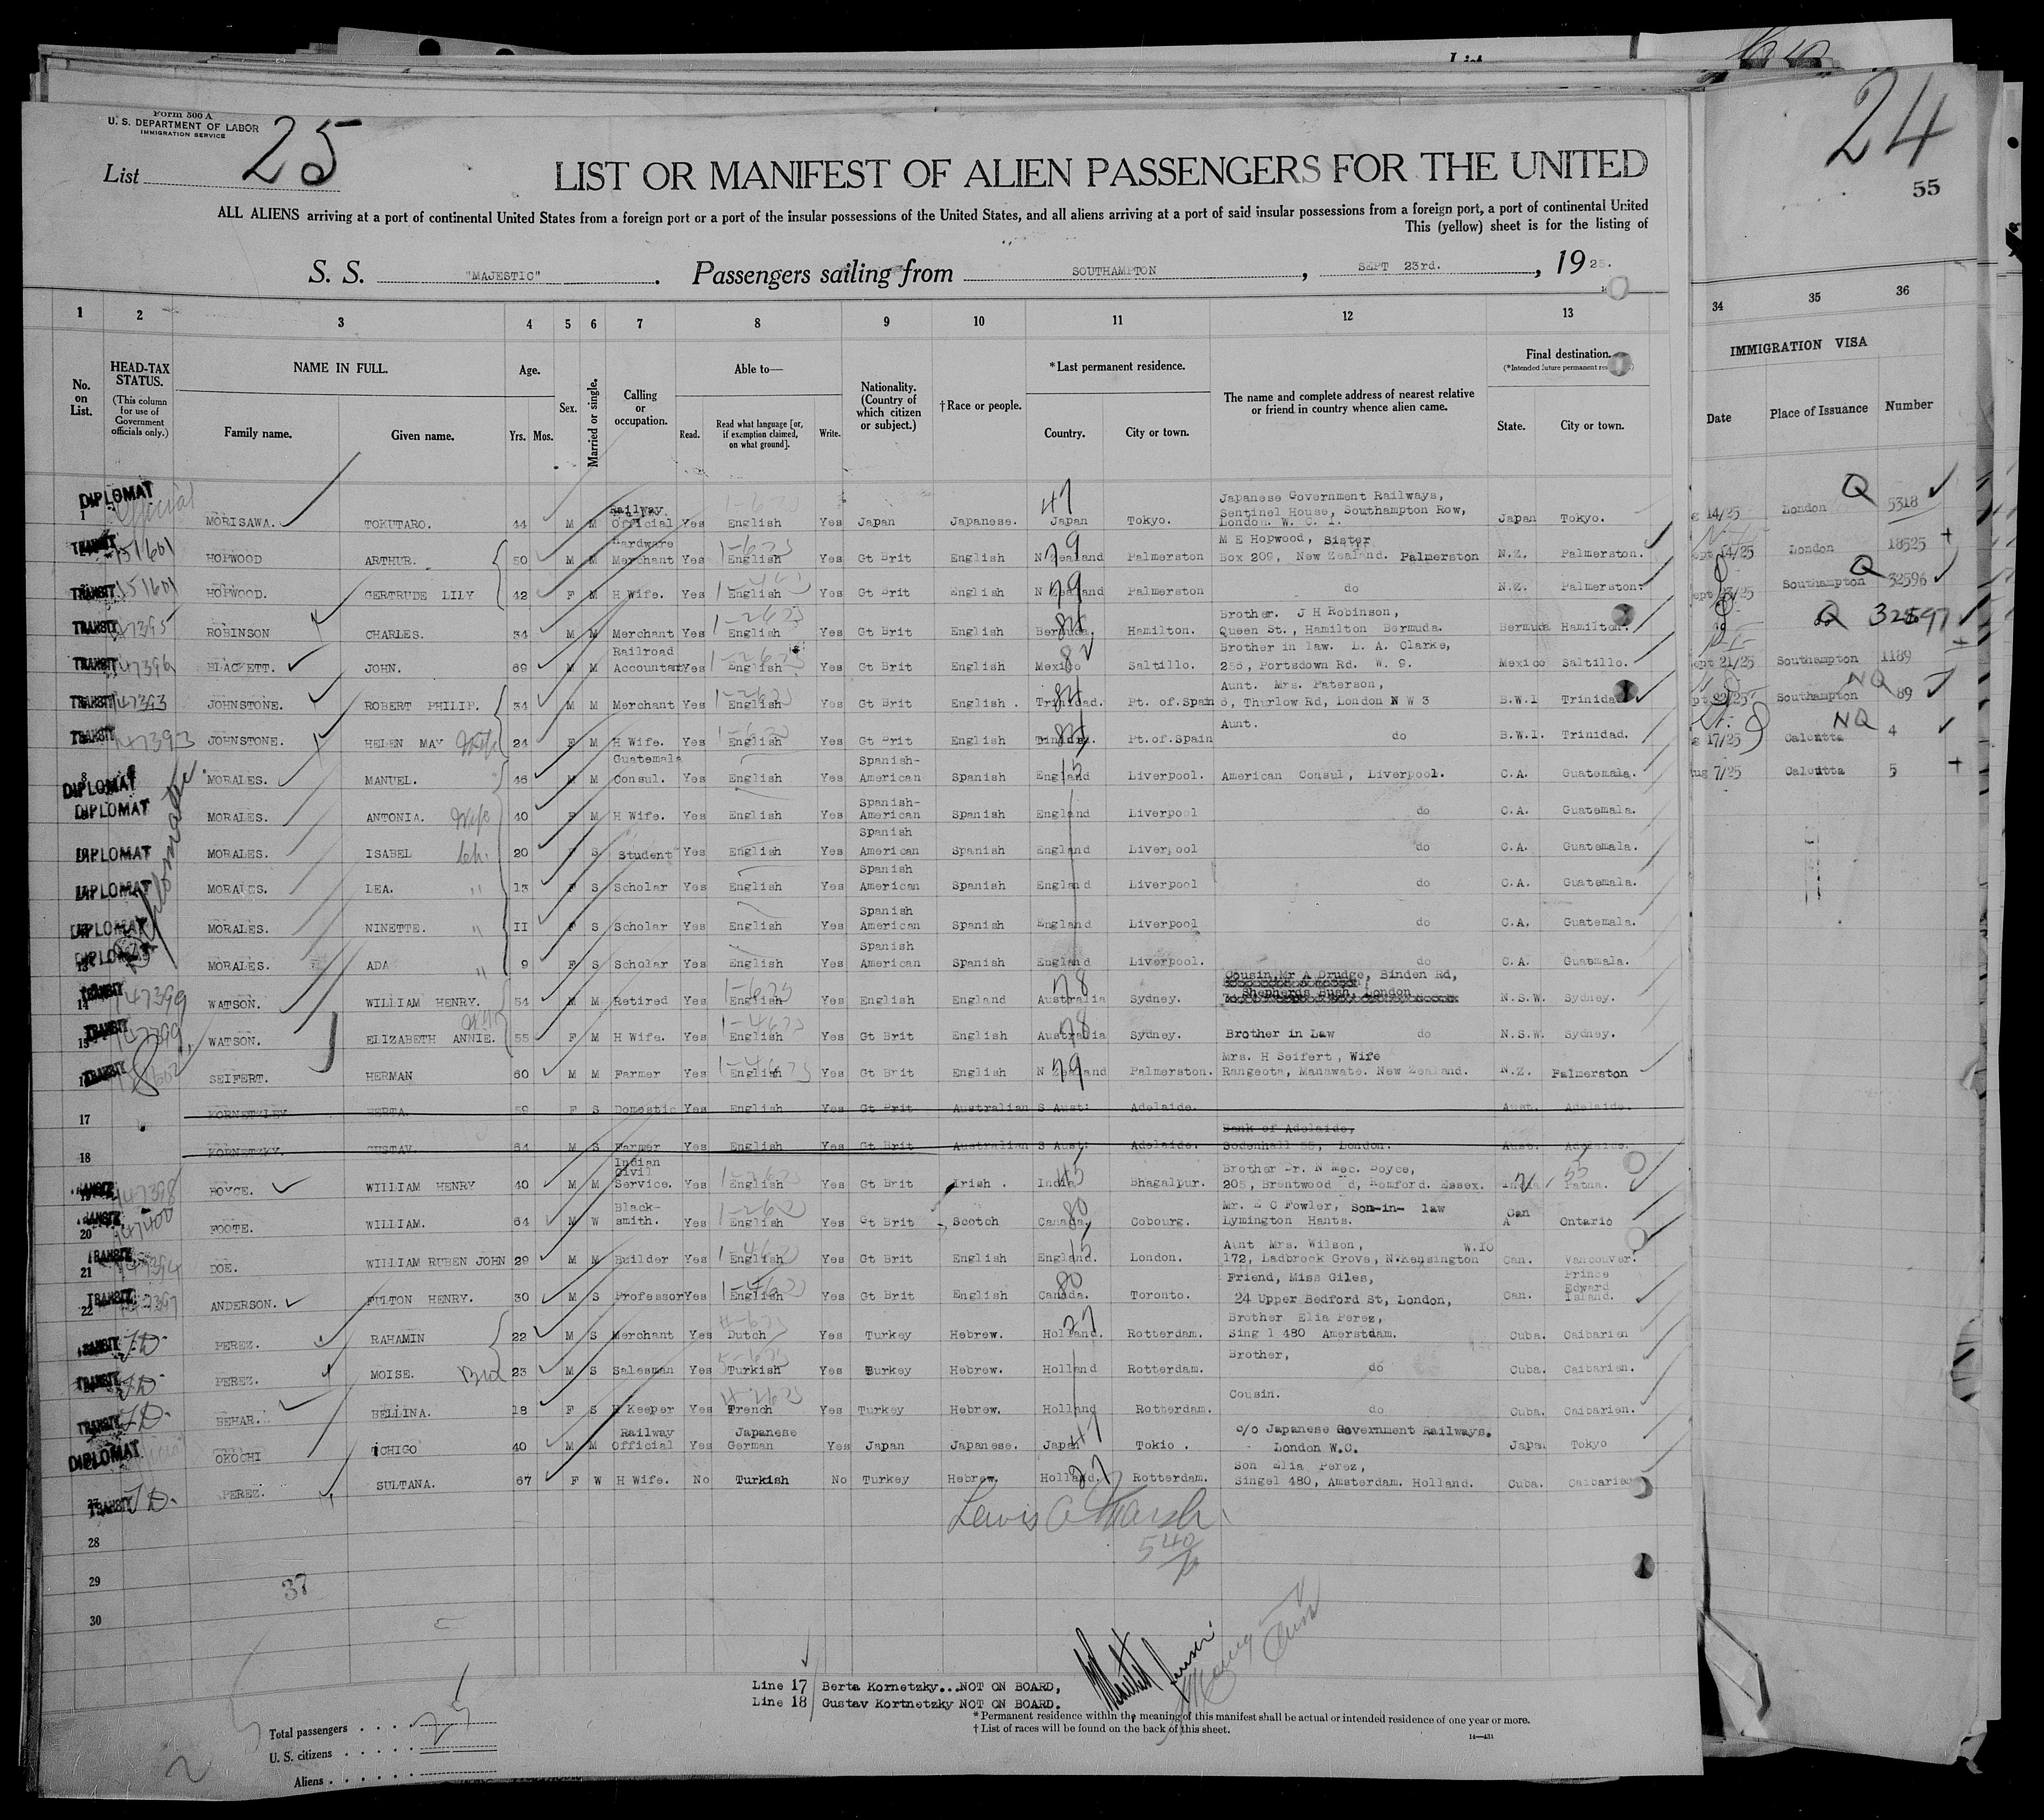 Form 500 A
U. S. DEPARTMENT OF LABOR
IMMIGRATION SERVICE
List 25
LIST OR MANIFEST OF ALIEN PASSENGERS FOR THE UNITED
ALL ALIENS arriving at a port of continental United States from a foreign port or a port of the insular possessions of the United States, and all aliens arriving at a port of said insular possessions from a foreign port, a port of continental United
This (yellow) sheet is for the listing of
S. S. "MAJESTIC". Passengers sailing from SOUTHAMPTON, SEPT 23rd., 1925.
1 2 3 4 5 6 7 8 9 10 11 12 13
No. on List.
HEAD-TAX STATUS.
(This column for use of Government officials only.)
NAME IN FULL.
Family name. Given name.
Age.
Yrs. Mos.
Sex.
Married or single.
Calling or occupation.
Able to—
Read. Read what language [or, if exemption claimed, on what ground]. Write.
Nationality. (Country of which citizen or subject.)
†Race or people.
*Last permanent residence.
Country. City or town.
The name and complete address of nearest relative or friend in country whence alien came.
Final destination.
State. City or town.
DIPLOMAT 1 Official MORISAWA. TOKUTARO. 44 M M Railway Official Yes English Yes Japan Japanese. 47 Japan Tokyo. Japanese Government Railways, Sentinel House, Southampton Row, London. W. C. 1. Japan Tokyo.
TRANSIT 151601 HOPWOOD ARTHUR. 50 M M Hardware Merchant Yes English Yes Gt Brit English N Zealand 79 Palmerston M E Hopwood, Sister Box 209, New Zealand. Palmerston N.Z. Palmerston.
TRANSIT 151601 HOPWOOD. GERTRUDE LILY 42 F M H Wife. Yes English Yes Gt Brit English N Zealand 79 Palmerston do N.Z. Palmerston.
TRANSIT 47395 ROBINSON CHARLES. 34 M M Merchant Yes English Yes Gt Brit English Bermuda. 84 Hamilton. Brother. J H Robinson, Queen St., Hamilton Bermuda. Bermuda Hamilton.
TRANSIT 47396 BLACKETT. JOHN. 69 M M Railroad Accountant Yes English Yes Gt Brit English Mexico 82 Saltillo. Brother in law. L. A. Clarke, 256, Portsdown Rd. W. 9. Mexico Saltillo.
TRANSIT 147393 JOHNSTONE. ROBERT PHILIP. 34 M M Merchant Yes English Yes Gt Brit English. Trinidad. 84 Pt. of.Spain Aunt. Mrs. Paterson, 6, Thurlow Rd, London N W 3 B.W.I Trinidad
TRANSIT 147393 JOHNSTONE. HELEN MAY Wife 24 F M H Wife. Yes English Yes Gt Brit English Trinidad. 84 Pt.of.Spain Aunt. do B.W.I. Trinidad.
8 DIPLOMAT MORALES. MANUEL. 46 M M Guatemala Consul. Yes English Yes Spanish-American Spanish England 15 Liverpool. American Consul, Liverpool. C.A. Guatemala.
DIPLOMAT MORALES. ANTONIA. Wife 40 F M H Wife. Yes English Yes Spanish-American Spanish England Liverpool do C.A. Guatemala.
DIPLOMAT MORALES. ISABEL ch. 20 F S Student Yes English Yes Spanish American Spanish England Liverpool do C.A. Guatemala.
DIPLOMAT MORALES. LEA. " 13 F S Scholar Yes English Yes Spanish American Spanish England Liverpool do C.A. Guatemala.
DIPLOMAT MORALES. NINETTE. " II F S Scholar Yes English Yes Spanish American Spanish England Liverpool do C.A. Guatemala.
DIPLOMAT 13 MORALES. ADA " 9 F S Scholar Yes English Yes Spanish American Spanish England Liverpool. do C.A. Guatmala.
TRANSIT 14 147399 WATSON. WILLIAM HENRY. 54 M M Retired Yes English Yes English England Australia 78 Sydney. Cousin, Mr A Drudge, Binden Rd, Shepherds Bush, London N.S.W. Sydney.
TRANSIT 15 147399 WATSON. ELIZABETH ANNIE. 55 F M H Wife. Yes English Yes Gt Brit English Australia 78 Sydney. Brother in Law do N.S.W. Sydney.
TRANSIT SEIFERT. HERMAN 60 M M Farmer Yes English Yes Gt Brit English N Zealand 79 Palmerston. Mrs. H Seifert, Wife Rangeota, Manawate. New Zealand. N.Z. Palmerston
17 KORNETZLEY BERTA. 59 F S Domestic Yes English Yes Gt Brit Australian S Aust: Adelaide. Aust. Adelaide.
18 KORNETZKY. GUSTAV. 64 M S Farmer Yes English Yes Gt Brit Australian S Aust: Adelaide. Bank of Adelaide, London. Aust. Adelaide.
TRANSIT 147398 BOYCE. WILLIAM HENRY 40 M M Indian Civil Service. Yes English Yes Gt Brit Irish. India 45 Bhagalpur. Brother Dr. N Mec. Boyce, 205, Brentwood Rd, Romford. Essex. India Patna.
TRANSIT 20 147400 FOOTE. WILLIAM. 64 M W Black-smith. Yes English Yes Gt Brit Scotch Canada, 80 Cobourg. Mr. E C Fowler, Son-in-law Lymington Hants. Can Ontario
TRANSIT 21 147394 DOE. WILLIAM RUBEN JOHN 29 M M Builder Yes English Yes Gt Brit English England. 15 London. Aunt Mrs. Wilson, W.10 172, Ladbrook Grove, N.Kensington Can. Vancouver.
TRANSIT 22 147397 ANDERSON. FULTON HENRY. 30 M S Professor Yes English Yes Gt Brit English Canada. 80 Toronto. Friend, Miss Giles, 24 Upper Bedford St, London, Can. Prince Edward Island.
TRANSIT TD. PEREZ. RAHAMIN 22 M S Merchant Yes Dutch Yes Turkey Hebrew. Holland. 27 Rotterdam. Brother Elia Perez, Sing l 480 Amerstdam. Cuba. Caibarien
TRANSIT TD. PEREZ. MOISE. Bro 23 M S Salesman Yes Turkish Yes Turkey Hebrew. Holland Rotterdam. Brother, do Cuba. Caibarien.
TRANSIT TD. BEHAR. BELLINA. 18 F S H Keeper Yes French Yes Turkey Hebrew. Holland Rotterdam. Cousin. do Cuba. Caibarien.
DIPLOMAT OKOCHI ICHIGO 40 M M Railway Official Yes Japanese German Yes Japan Japanese. Japan 47 Tokio. c/o Japanese Government Railways. London W.C. Japan Tokyo
27 TRANSIT TD. PEREZ. SULTANA. 67 F W H Wife. No Turkish No Turkey Hebrew. Holland. 27 Rotterdam. Son Elia Perez, Singel 480, Amsterdam. Holland. Cuba. Caibarien
Lewis A Marsh
540
28
29
37
30
Line 17 Berta Kornetzky...NOT ON BOARD,
Line 18 Gustav Kortnetzky NOT ON BOARD.
*Permanent residence within the meaning of this manifest shall be actual or intended residence of one year or more.
†List of races will be found on the back of this sheet.
14—431
Total passengers . . . . 25
U. S. citizens . . . . .
Aliens . . . . . .
24
55
34 35 36
IMMIGRATION VISA
Date Place of Issuance Number
g 14/25 London Q 5318
ept 14/25 London 18525
ept 23/25 Southampton Q 32596
do Q 32597
ept 21/25 Southampton 1189
pt 22/25 Southampton NQ 89
g 17/25 Calcutta NQ 4
ug 7/25 Calcutta 5